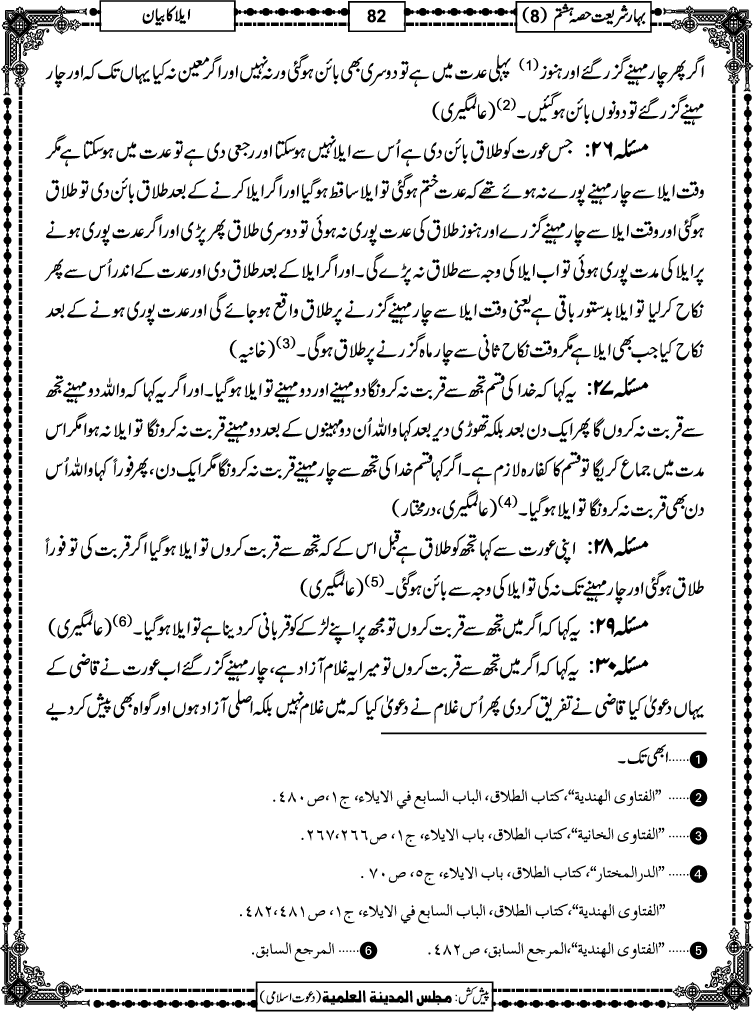 بہارِ شریعت حصہ ہشتم (8)
82
ایلا کا بیان
اگر پھر چار مہینے گزر گئے اور ہنوز (1) پہلی عدت میں ہے تو دوسری بھی بائن ہوگئی ورنہ نہیں اور اگر معین نہ کیا یہاں تک کہ اور چار
مہینے گزر گئے تو دونوں بائن ہوگئیں۔ (2) (عالمگیری)
مسئلہ ۲۶: جس عورت کو طلاق بائن دی ہے اُس سے ایلا نہیں ہو سکتا اور رجعی دی ہے تو عدت میں ہو سکتا ہے مگر
وقت ایلا سے چار مہینے پورے نہ ہوئے تھے کہ عدت ختم ہوگئی تو ایلا ساقط ہوگیا اور اگر ایلا کرنے کے بعد طلاق بائن دی تو طلاق
ہوگئی اور وقت ایلا سے چار مہینے گزرے اور ہنوز طلاق کی عدت پوری نہ ہوئی تو دوسری طلاق پھر پڑی اور اگر عدت پوری ہونے
پر ایلا کی مدت پوری ہوئی تو اب ایلا کی وجہ سے طلاق نہ پڑے گی۔ اور اگر ایلا کے بعد طلاق دی اور عدت کے اندر اُس سے پھر
نکاح کر لیا تو ایلا بدستور باقی ہے یعنی وقت ایلا سے چار مہینے گزرنے پر طلاق واقع ہو جائے گی اور عدت پوری ہونے کے بعد
نکاح کیا جب بھی ایلا ہے مگر وقت نکاح ثانی سے چار ماہ گزرنے پر طلاق ہوگی۔ (3) (خانیہ)
مسئلہ ۲۷: یہ کہا کہ خدا کی قسم تجھ سے قربت نہ کرونگا دو مہینے اور دو مہینے تو ایلا ہوگیا۔ اور اگر یہ کہا کہ واللہ دو مہینے تجھ
سے قربت نہ کروں گا پھر ایک دن بعد بلکہ تھوڑی دیر بعد کہا واللہ اُن دو مہینوں کے بعد دو مہینے قربت نہ کرونگا تو ایلا نہ ہوا مگر اس
مدت میں جماع کریگا تو قسم کا کفارہ لازم ہے۔ اگر کہا قسم خدا کی تجھ سے چار مہینے قربت نہ کرونگا مگر ایک دن، پھر فوراً کہا واللہ اُس
دن بھی قربت نہ کرونگا تو ایلا ہوگیا۔ (4) (عالمگیری، درمختار)
مسئلہ ۲۸: اپنی عورت سے کہا تجھ کو طلاق ہے قبل اس کے کہ تجھ سے قربت کروں تو ایلا ہوگیا اگر قربت کی تو فوراً
طلاق ہوگئی اور چار مہینے تک نہ کی تو ایلا کی وجہ سے بائن ہوگئی۔ (5) (عالمگیری)
مسئلہ ۲۹: یہ کہا کہ اگر میں تجھ سے قربت کروں تو مجھ پر اپنے لڑکے کو قربانی کر دینا ہے تو ایلا ہوگیا۔ (6) (عالمگیری)
مسئلہ ۳۰: یہ کہا کہ اگر میں تجھ سے قربت کروں تو میرا یہ غلام آزاد ہے، چار مہینے گزر گئے اب عورت نے قاضی کے
یہاں دعویٰ کیا قاضی نے تفریق کردی پھر اُس غلام نے دعویٰ کیا کہ میں غلام نہیں بلکہ اصلی آزاد ہوں اور گواہ بھی پیش کر دیے
1 ...... ابھی تک۔
2 ...... "الفتاوی الهندية"، كتاب الطلاق، الباب السابع في الايلاء، ج١، ص٤٨٠.
3 ...... "الفتاوى الخانية"، كتاب الطلاق، باب الايلاء، ج١، ص٢٦٦،٢٦٧.
4 ...... "الدرالمختار"، كتاب الطلاق، باب الايلاء، ج٥، ص٧٠.
"الفتاوى الهندية"، كتاب الطلاق، الباب السابع في الايلاء، ج١، ص٤٨١،٤٨٢.
5 ...... "الفتاوى الهندية"، المرجع السابق، ص٤٨٢. 6 ...... المرجع السابق.
پیش کش: مجلس المدینة العلمیة (دعوت اسلامی)